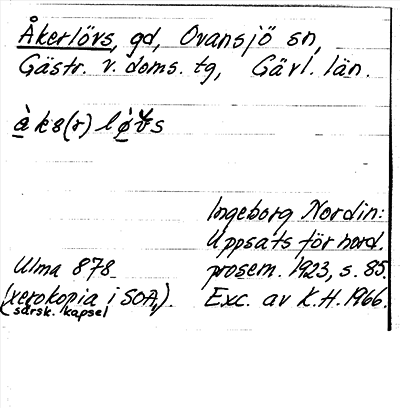 Åkerlövs, gd, Ovansjö sn,
Gästr. v. doms. tg, Gävl. län.
àkə(r)lø̀vs
Ingeborg Nordin:
Uppsats för nord.
Ulma 878 prosem. 1923, s. 85.
(xerokopia i SOA,). Exc. av K.H. 1966.
särsk. kapsel